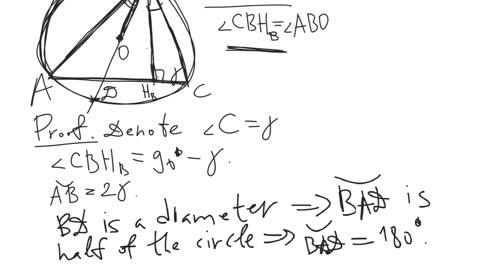 ∠CBH_B = ∠ABO
O
A
D
H_B
γ
C
Proof. Denote ∠C = γ
∠CBH_B = 90° − γ.
A͝B = 2γ.
BD is a diameter ⟹ B͝AD is
half of the circle ⟹ B͝AD = 180°.